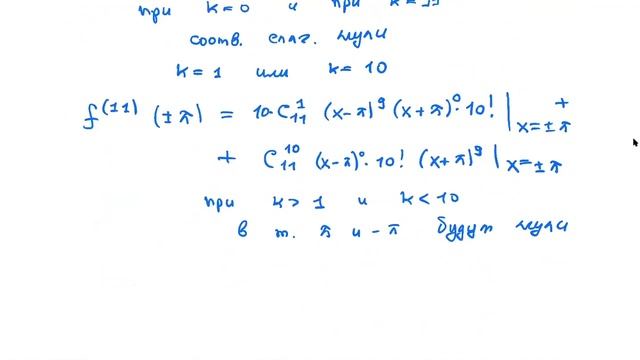 при k=0 и при k=11
соотв. слаг. нули
k=1 или k=10
f^(11) (±π) = 10·C_11^1 (x-π)^9 (x+π)^0·10! |_x=±π +
+ C_11^10 (x-π)^0·10! (x+π)^9 |_x=±π
при k>1 и k<10
в т. π и -π будут нули